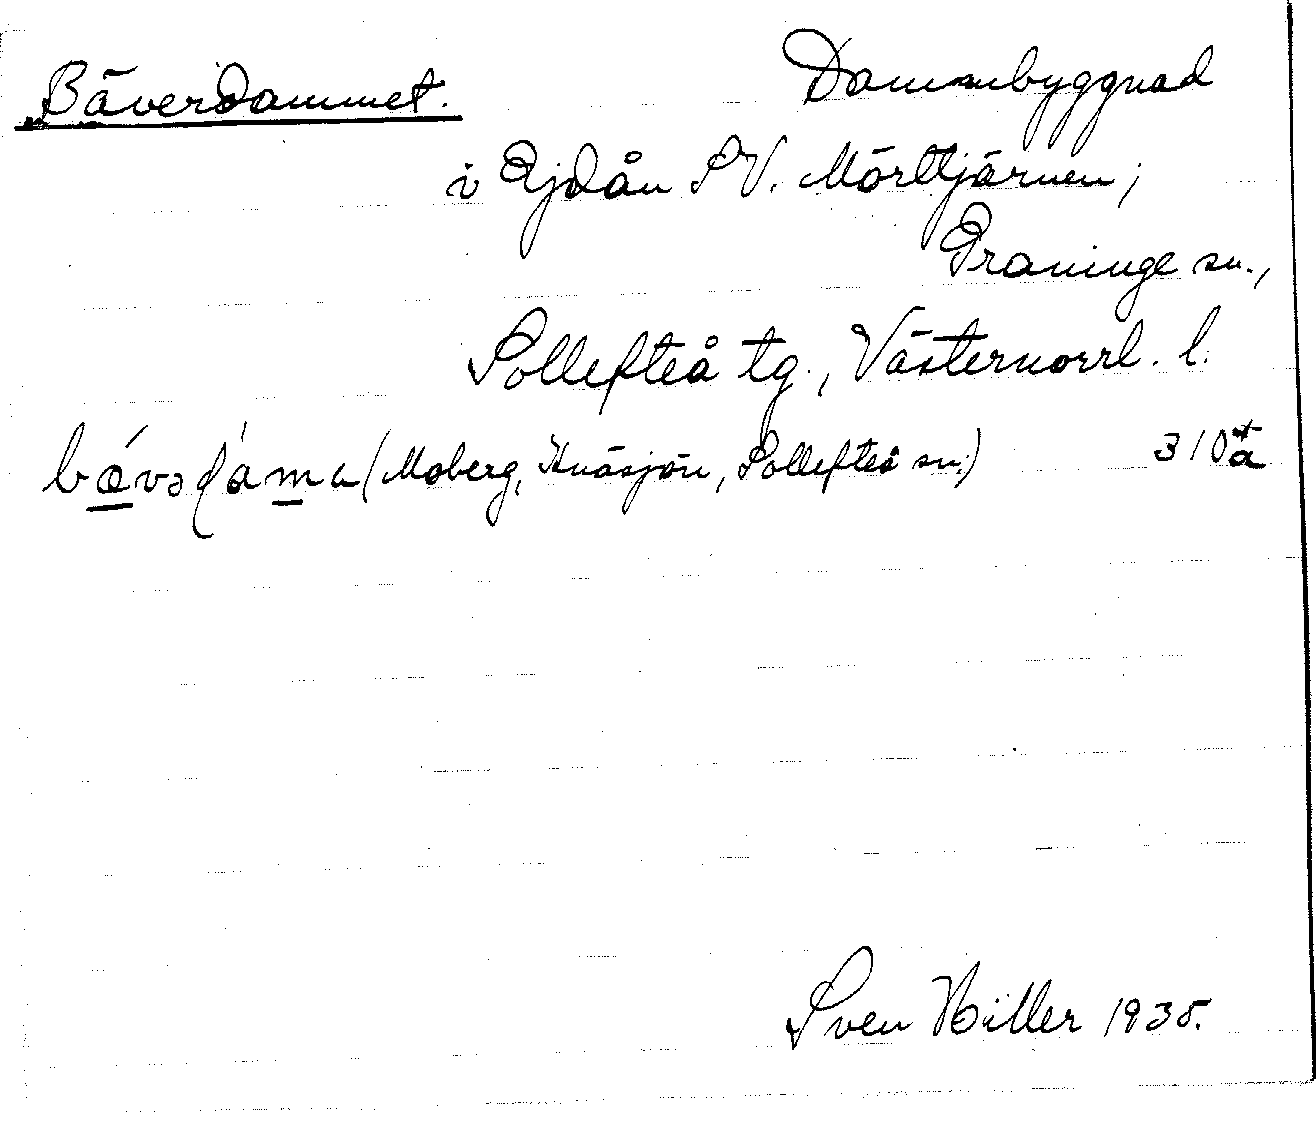 Bäverdammet. Dammbyggnad
i Rjdån SV. Mörttjärnen;
Graninge sn.,
Sollefteå tg., Västernorrl. l.
(Moberg, Knäsjön, Sollefteå sn.) 310
Sven Hiller 1935.